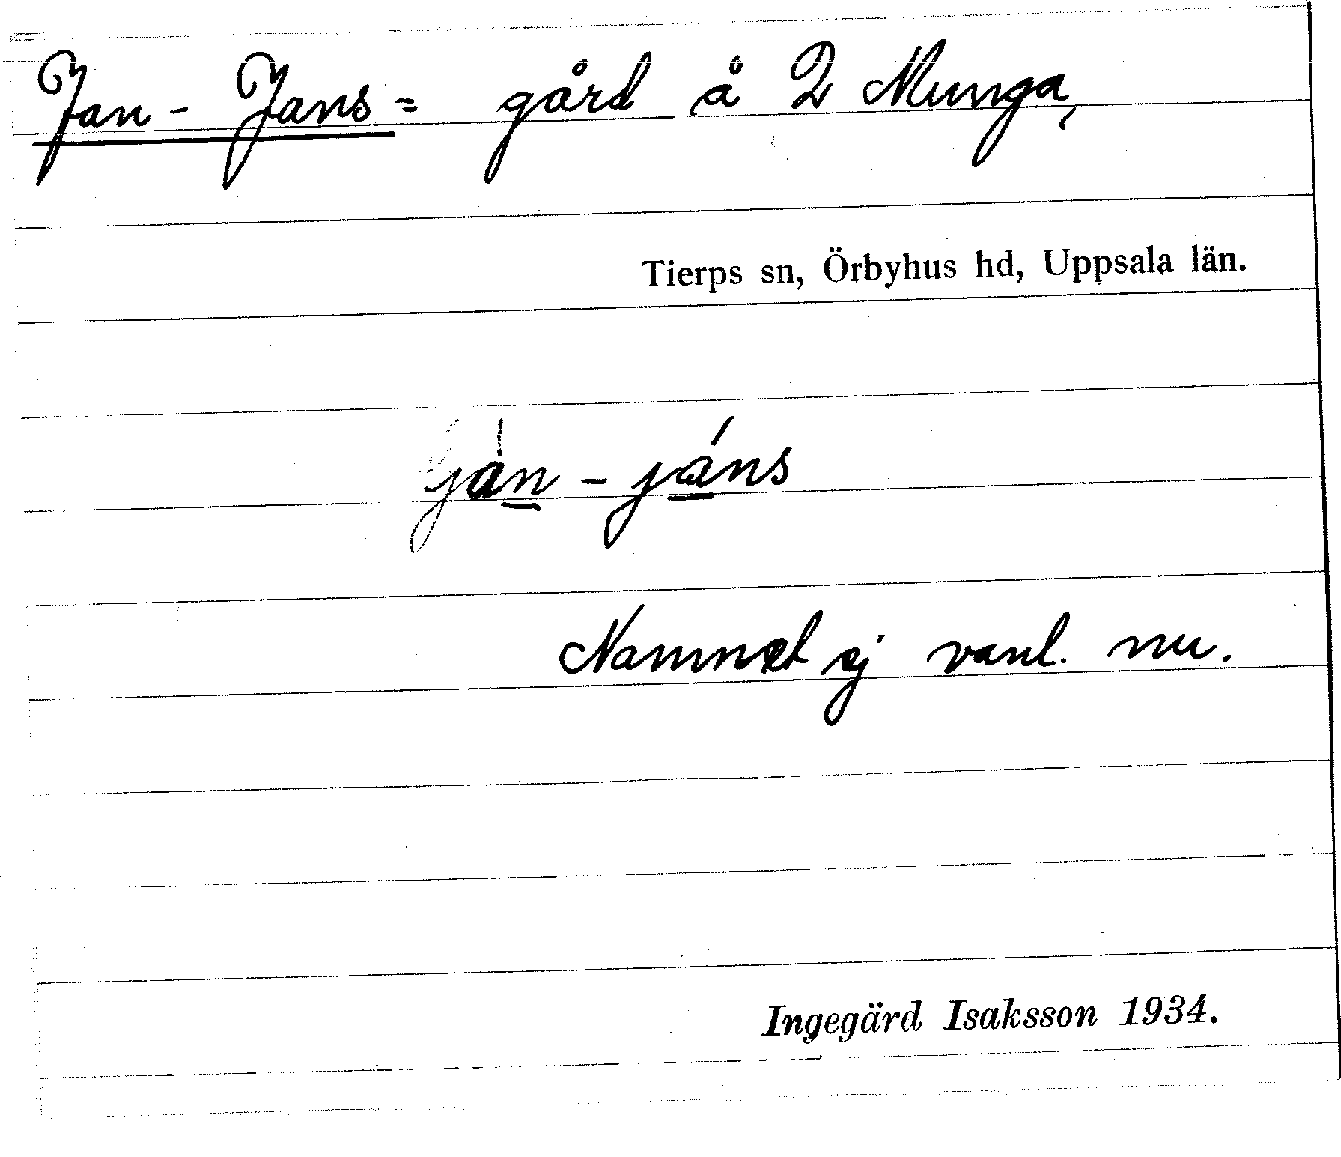 Jan - Jans = gård å 2 Munga,
Tierps sn, Örbyhus hd, Uppsala län.
jàn - jáns
Namnet ej vanl. nu.
Ingegärd Isaksson 1934.